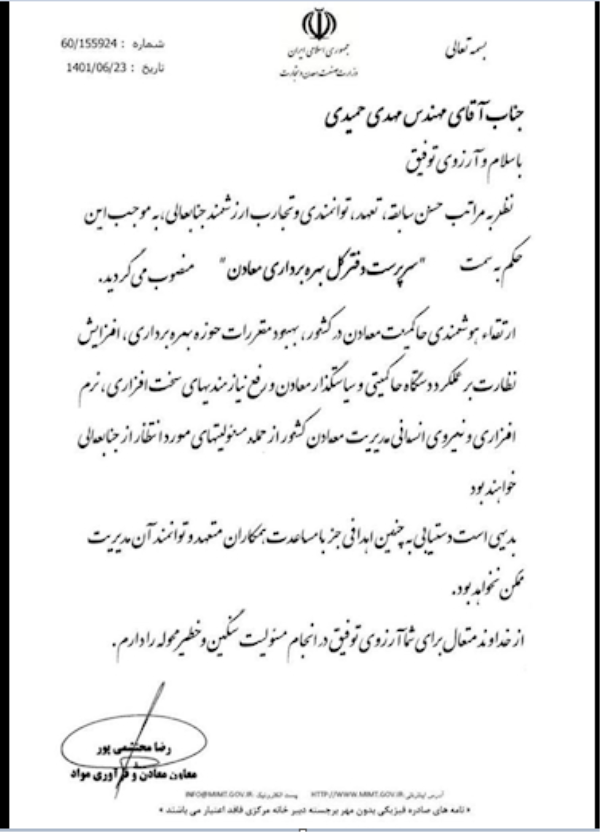 بسمه تعالی
جمهوری اسلامی ایران
وزارت صنعت، معدن و تجارت
شماره : 60/155924
تاریخ : 1401/06/23
جناب آقای مهندس مهدی حمیدی
باسلام و آرزوی توفیق
نظر به مراتب حسن سابقه، تعهد، توانمندی و تجارب ارزشمند جنابعالی، به موجب این
حکم به سمت "سرپرست دفتر کل بهره برداری معادن" منصوب می گردید.
ارتقاء هوشمندی حاکمیت معادن در کشور، بهبود مقررات حوزه بهره برداری، افزایش
نظارت بر عملکرد دستگاه حاکمیتی و سیاستگذار معادن و رفع نیازمندیهای سخت افزاری، نرم
افزاری و نیروی انسانی مدیریت معادن کشور از جمله مسئولیتهای مورد انتظار از جنابعالی
خواهند بود
بدیهی است دستیابی به چنین اهدافی جز با مساعدت همکاران متعهد و توانمند آن مدیریت
ممکن نخواهد بود.
از خداوند متعال برای شما آرزوی توفیق در انجام مسئولیت سنگین و خطیر محوله را دارم.
رضا محتشمی پور
معاون معادن و فرآوری مواد
آدرس اینترنتی HTTP://WWW.MIMT.GOV.IR پست الکترونیک INFO@MIMT.GOV.IR
« نامه های صادره فیزیکی بدون مهر برجسته دبیر خانه مرکزی فاقد اعتبار می باشند »